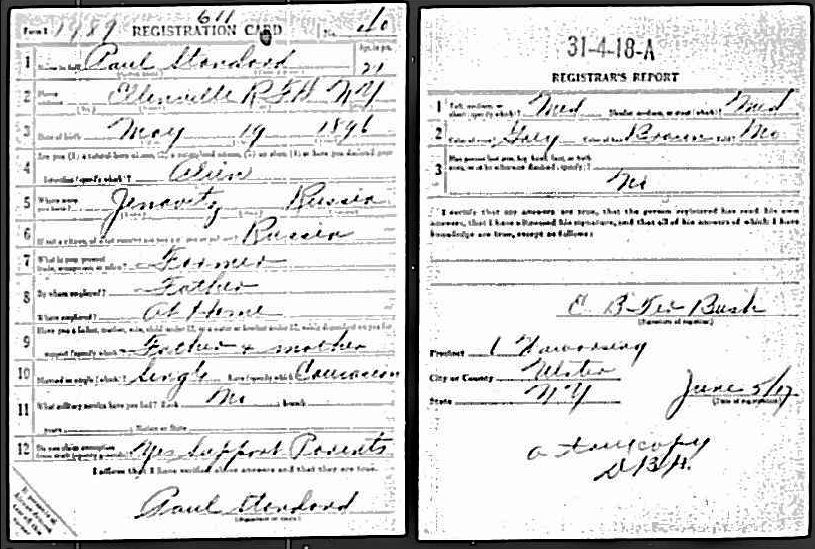 Form 1 1989 REGISTRATION CARD 611 No. 210
1 Name in full Paul Standard Age, in yrs. 21
2 Home Ellenville R F D N Y
3 Date of birth May 19 1896
4 Are you (1) a natural-born citizen, (2) a naturalized citizen, (3) an alien, (4) or have you declared your
intention (specify which)? Alien
5 Where were you born? Russia
6 If not a citizen, of what country are you a citizen or subject? Russia
7 What is your present trade, occupation, or office? Farmer
8 By whom employed? Father
Where employed? At Home
9 Have you a father, mother, wife, child under 12, or a sister or brother under 12, solely dependent on you for
support (specify which)? Father + mother
10 Married or single (which)? Single Race (specify which)? Caucasian
11 What military service have you had? Rank No branch
years Nation or State
12 Do you claim exemption from draft (specify grounds)? Yes Support Parents
I affirm that I have verified above answers and that they are true.
Paul Standard
(Signature or mark)
31-4-18-A
REGISTRAR'S REPORT
1 Tall, medium, or short (specify which)? Med Slender, medium, or stout (which)? Med
2 Color of eyes? Grey Color of hair? Brown Bald? No
3 Has person lost arm, leg, hand, foot, or both
eyes, or is he otherwise disabled (specify)?
No
I certify that my answers are true, that the person registered has read his own
answers, that I have witnessed his signature, and that all of his answers of which I have
knowledge are true, except as follows:
C B Ter Bush
(Signature of registrar)
Precinct 1 Wawarsing
City or County Ulster
State N Y June 5/17
(Date of registration)
a true copy